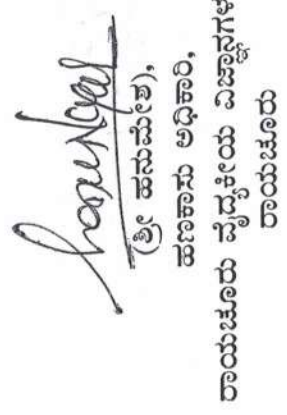 (ಶ್ರೀ ಹನುಮೇಶ),
ಹಣಕಾಸು ಅಧಿಕಾರಿ,
ರಾಯಚೂರು ವೈದ್ಯಕೀಯ ವಿಜ್ಞಾನಗಳ
ರಾಯಚೂರು